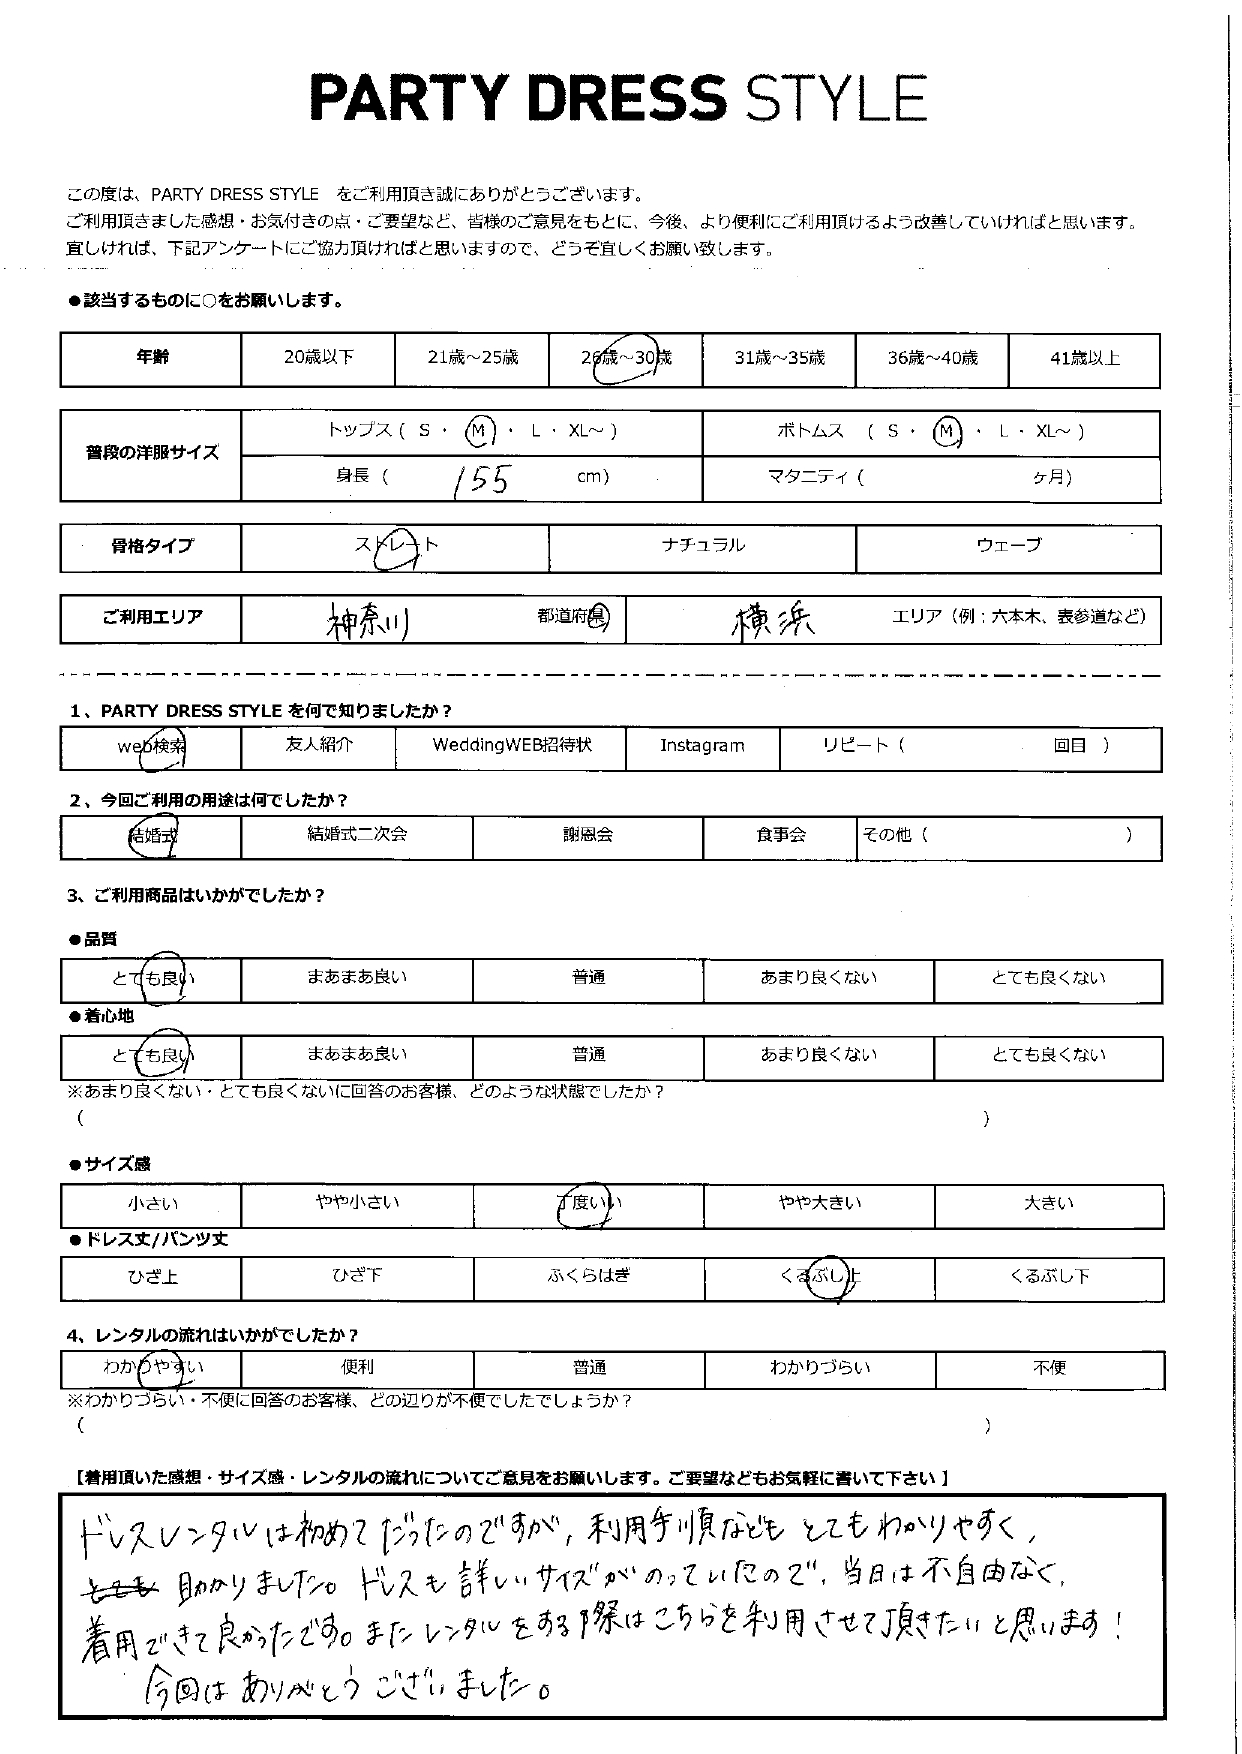 PARTY DRESS STYLE
この度は、PARTY DRESS STYLE をご利用頂き誠にありがとうございます。
ご利用頂きました感想・お気付きの点・ご要望など、皆様のご意見をもとに、今後、より便利にご利用頂けるよう改善していければと思います。
宜しければ、下記アンケートにご協力頂ければと思いますので、どうぞ宜しくお願い致します。
●該当するものに○をお願いします。
年齢 20歳以下 21歳～25歳 26歳～30歳 31歳～35歳 36歳～40歳 41歳以上
普段の洋服サイズ トップス ( S ・ M ・ L ・ XL～ ) ボトムス ( S ・ M ・ L ・ XL～ )
身長 ( 155 cm) マタニティ ( ヶ月)
骨格タイプ ストレート ナチュラル ウェーブ
ご利用エリア 神奈川 都道府県 横浜 エリア（例：六本木、表参道など）
1、PARTY DRESS STYLE を何で知りましたか？
web検索 友人紹介 WeddingWEB招待状 Instagram リピート ( 回目 )
2、今回ご利用の用途は何でしたか？
結婚式 結婚式二次会 謝恩会 食事会 その他 ( )
3、ご利用商品はいかがでしたか？
●品質
とても良い まあまあ良い 普通 あまり良くない とても良くない
●着心地
とても良い まあまあ良い 普通 あまり良くない とても良くない
※あまり良くない・とても良くないに回答のお客様、どのような状態でしたか？
( )
●サイズ感
小さい やや小さい 丁度いい やや大きい 大きい
●ドレス丈/パンツ丈
ひざ上 ひざ下 ふくらはぎ くるぶし上 くるぶし下
4、レンタルの流れはいかがでしたか？
わかりやすい 便利 普通 わかりづらい 不便
※わかりづらい・不便に回答のお客様、どの辺りが不便でしたでしょうか？
( )
【着用頂いた感想・サイズ感・レンタルの流れについてご意見をお願いします。ご要望などもお気軽に書いて下さい】
ドレスレンタルは初めてだったのですが、利用手順などもとてもわかりやすく、
とても 助かりました。ドレスも詳しいサイズがのっていたので、当日は不自由なく、
着用できて良かったです。またレンタルをある際はこちらを利用させて頂きたいと思います！
今回はありがとうございました。